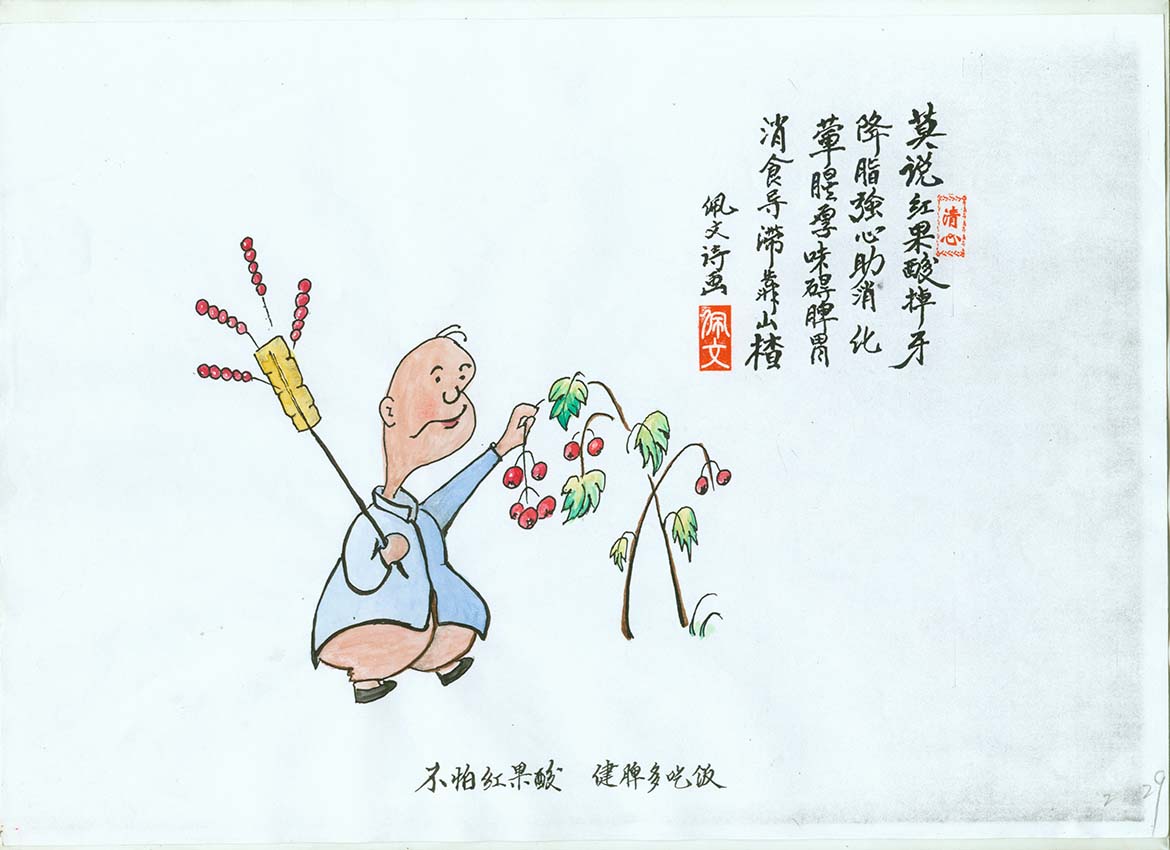 清心
莫说红果酸掉牙
降脂強心助消化
葷腥厚味碍脾胃
消食导滞山楂
佩文诗画
佩文
不怕红果酸 健脾多吃饭
2 29